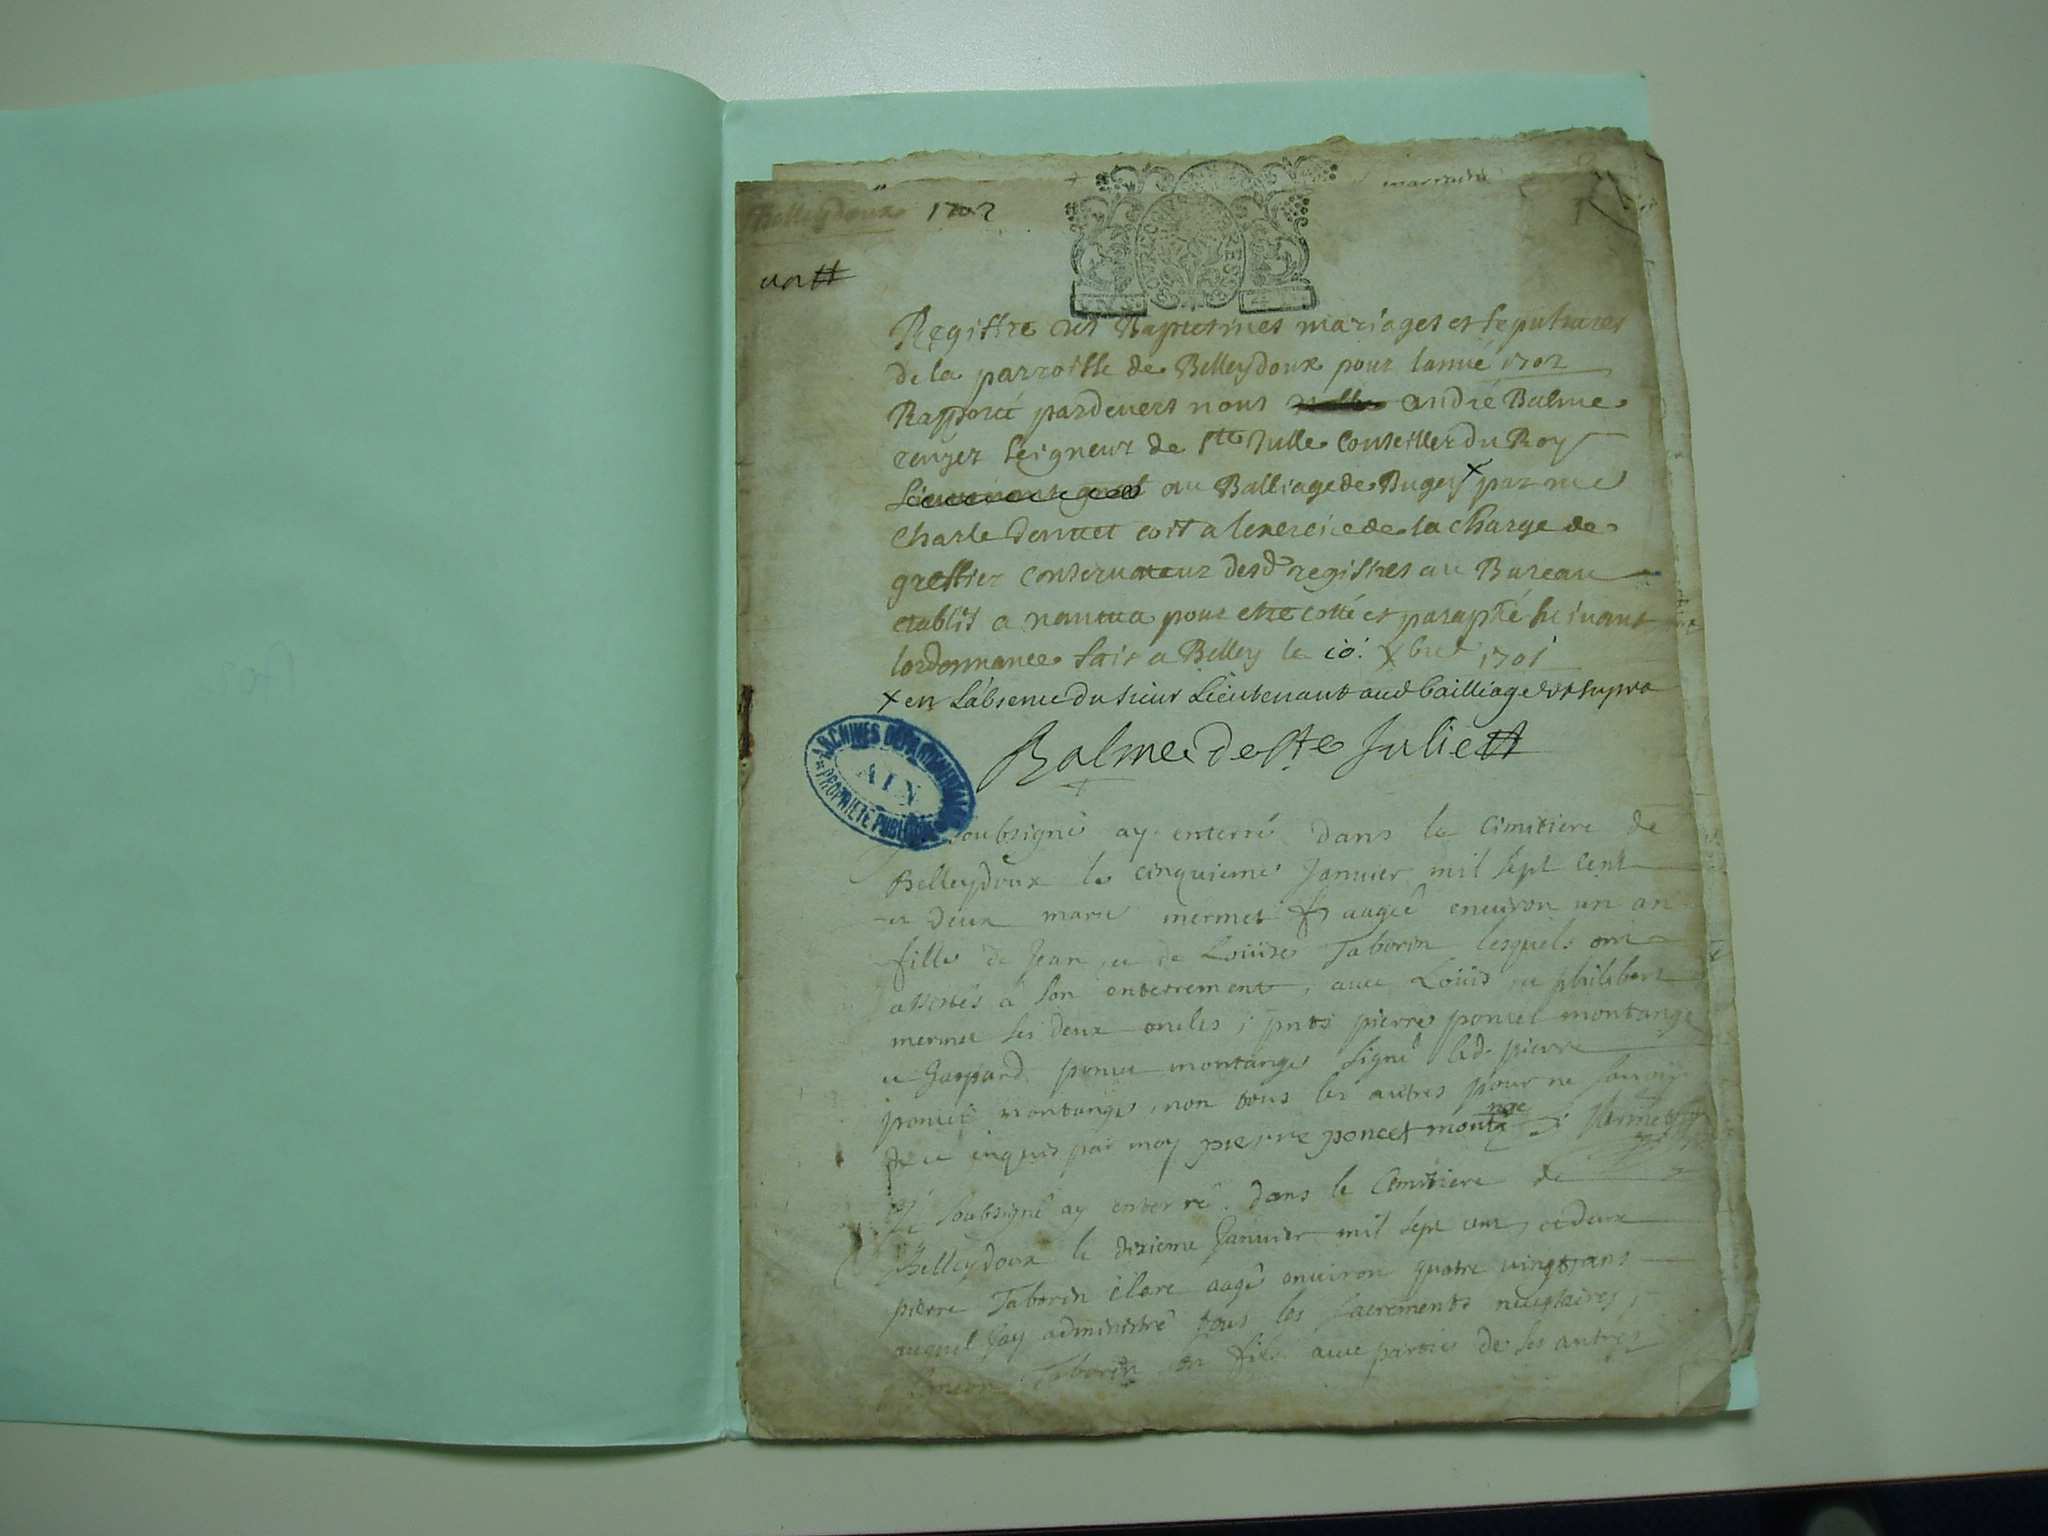 Belleydoux 1702
un
Registre des Baptesmes mariages et sepultures
de la parroisse de Belleydoux pour lannée 1702
Rapporté pardevers nous André Balme
ecuyer Seigneur de Ste Julle Conseiller du Roy
au Balliage de Bugey x par me
Charle commis a lexercice de la charge de
greffier conservateur desd registres au Bureau
etablit a nantua pour estre cotté et paraphé suivant
lordonnance fait a Belley le 10. xbre 1701
x en L'absence du sieur Lieutenant aud bailliage ut supra
Balme de Ste Julie
ARCHIVES DEPARTEMENTALES
AIN
PROPRIETE PUBLIQUE
soubsigné ay enterré dans le cimitiere de
Belleydoux le cinquieme Janvier mil sept cent
et deux marie mermet aagée environ un an
fille de Jean et de Louise Taborin lesquels ont
assistés a son enterrement, avec Louis et philibert
mermet ses deux oncles; pnts pierre poncet montange
et Gaspard poncet montange signé led. pierre
poncet montange, non tous les autres pour ne scavoir
de ce enquis par moy pierre poncet montange
Je soubsigné ay enterré dans le Cimitiere de
Belleydoux le dixieme Janvier mil sept cent et deux
pierre Taborin clare aagé environ quatre vingt ans
auquel jay administré tous les sacrements necessaires,
Taborin son fils avec parties de ses autres